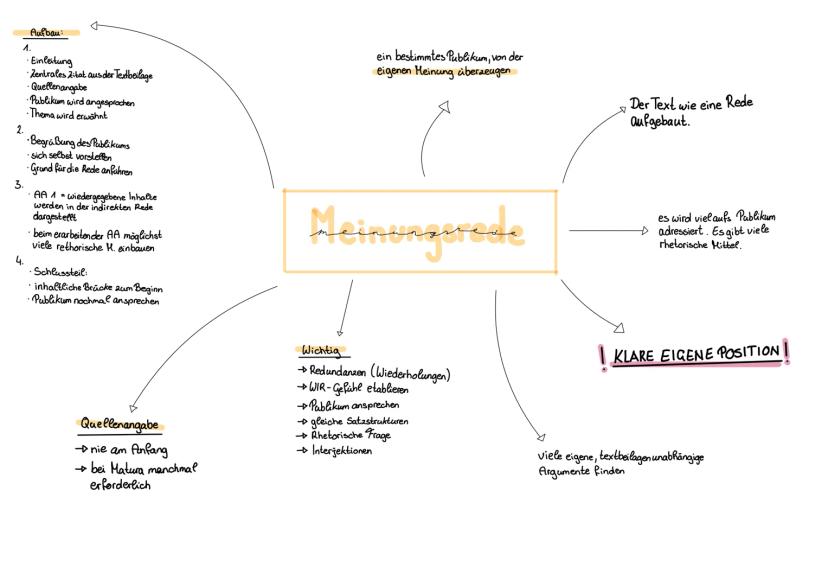 Aufbau:
1.
· Einleitung
· Zentrales Zitat aus der Textbeilage
· Quellenangabe
· Publikum wird angesprochen
· Thema wird erwähnt
2.
· Begrüßung des Publikums
· sich selbst vorstellen
· Grund für die Rede anführen
3.
· AA 1 = wiedergegebene Inhalte
werden in der indirekten Rede
dargestellt
· beim erarbeitender AA möglichst
viele rethorische M. einbauen
4.
· Schlussteil:
· inhaltliche Brücke zum Beginn
· Publikum nochmal ansprechen
ein bestimmtes Publikum, von der
eigenen Meinung überzeugen
Der Text wie eine Rede
aufgebaut.
Meinungsrede
meinungsrede
es wird viel aufs Publikum
adressiert. Es gibt viele
rhetorische Mittel.
! KLARE EIGENE POSITION !
Wichtig
→ Redundanzen (Wiederholungen)
→ WIR-Gefühl etablieren
→ Publikum ansprechen
→ gleiche Satzstrukturen
→ Rhetorische Frage
→ Interjektionen
Quellenangabe
→ nie am Anfang
→ bei Matura manchmal
erforderlich
viele eigene, textbeilagenunabhängige
Argumente finden